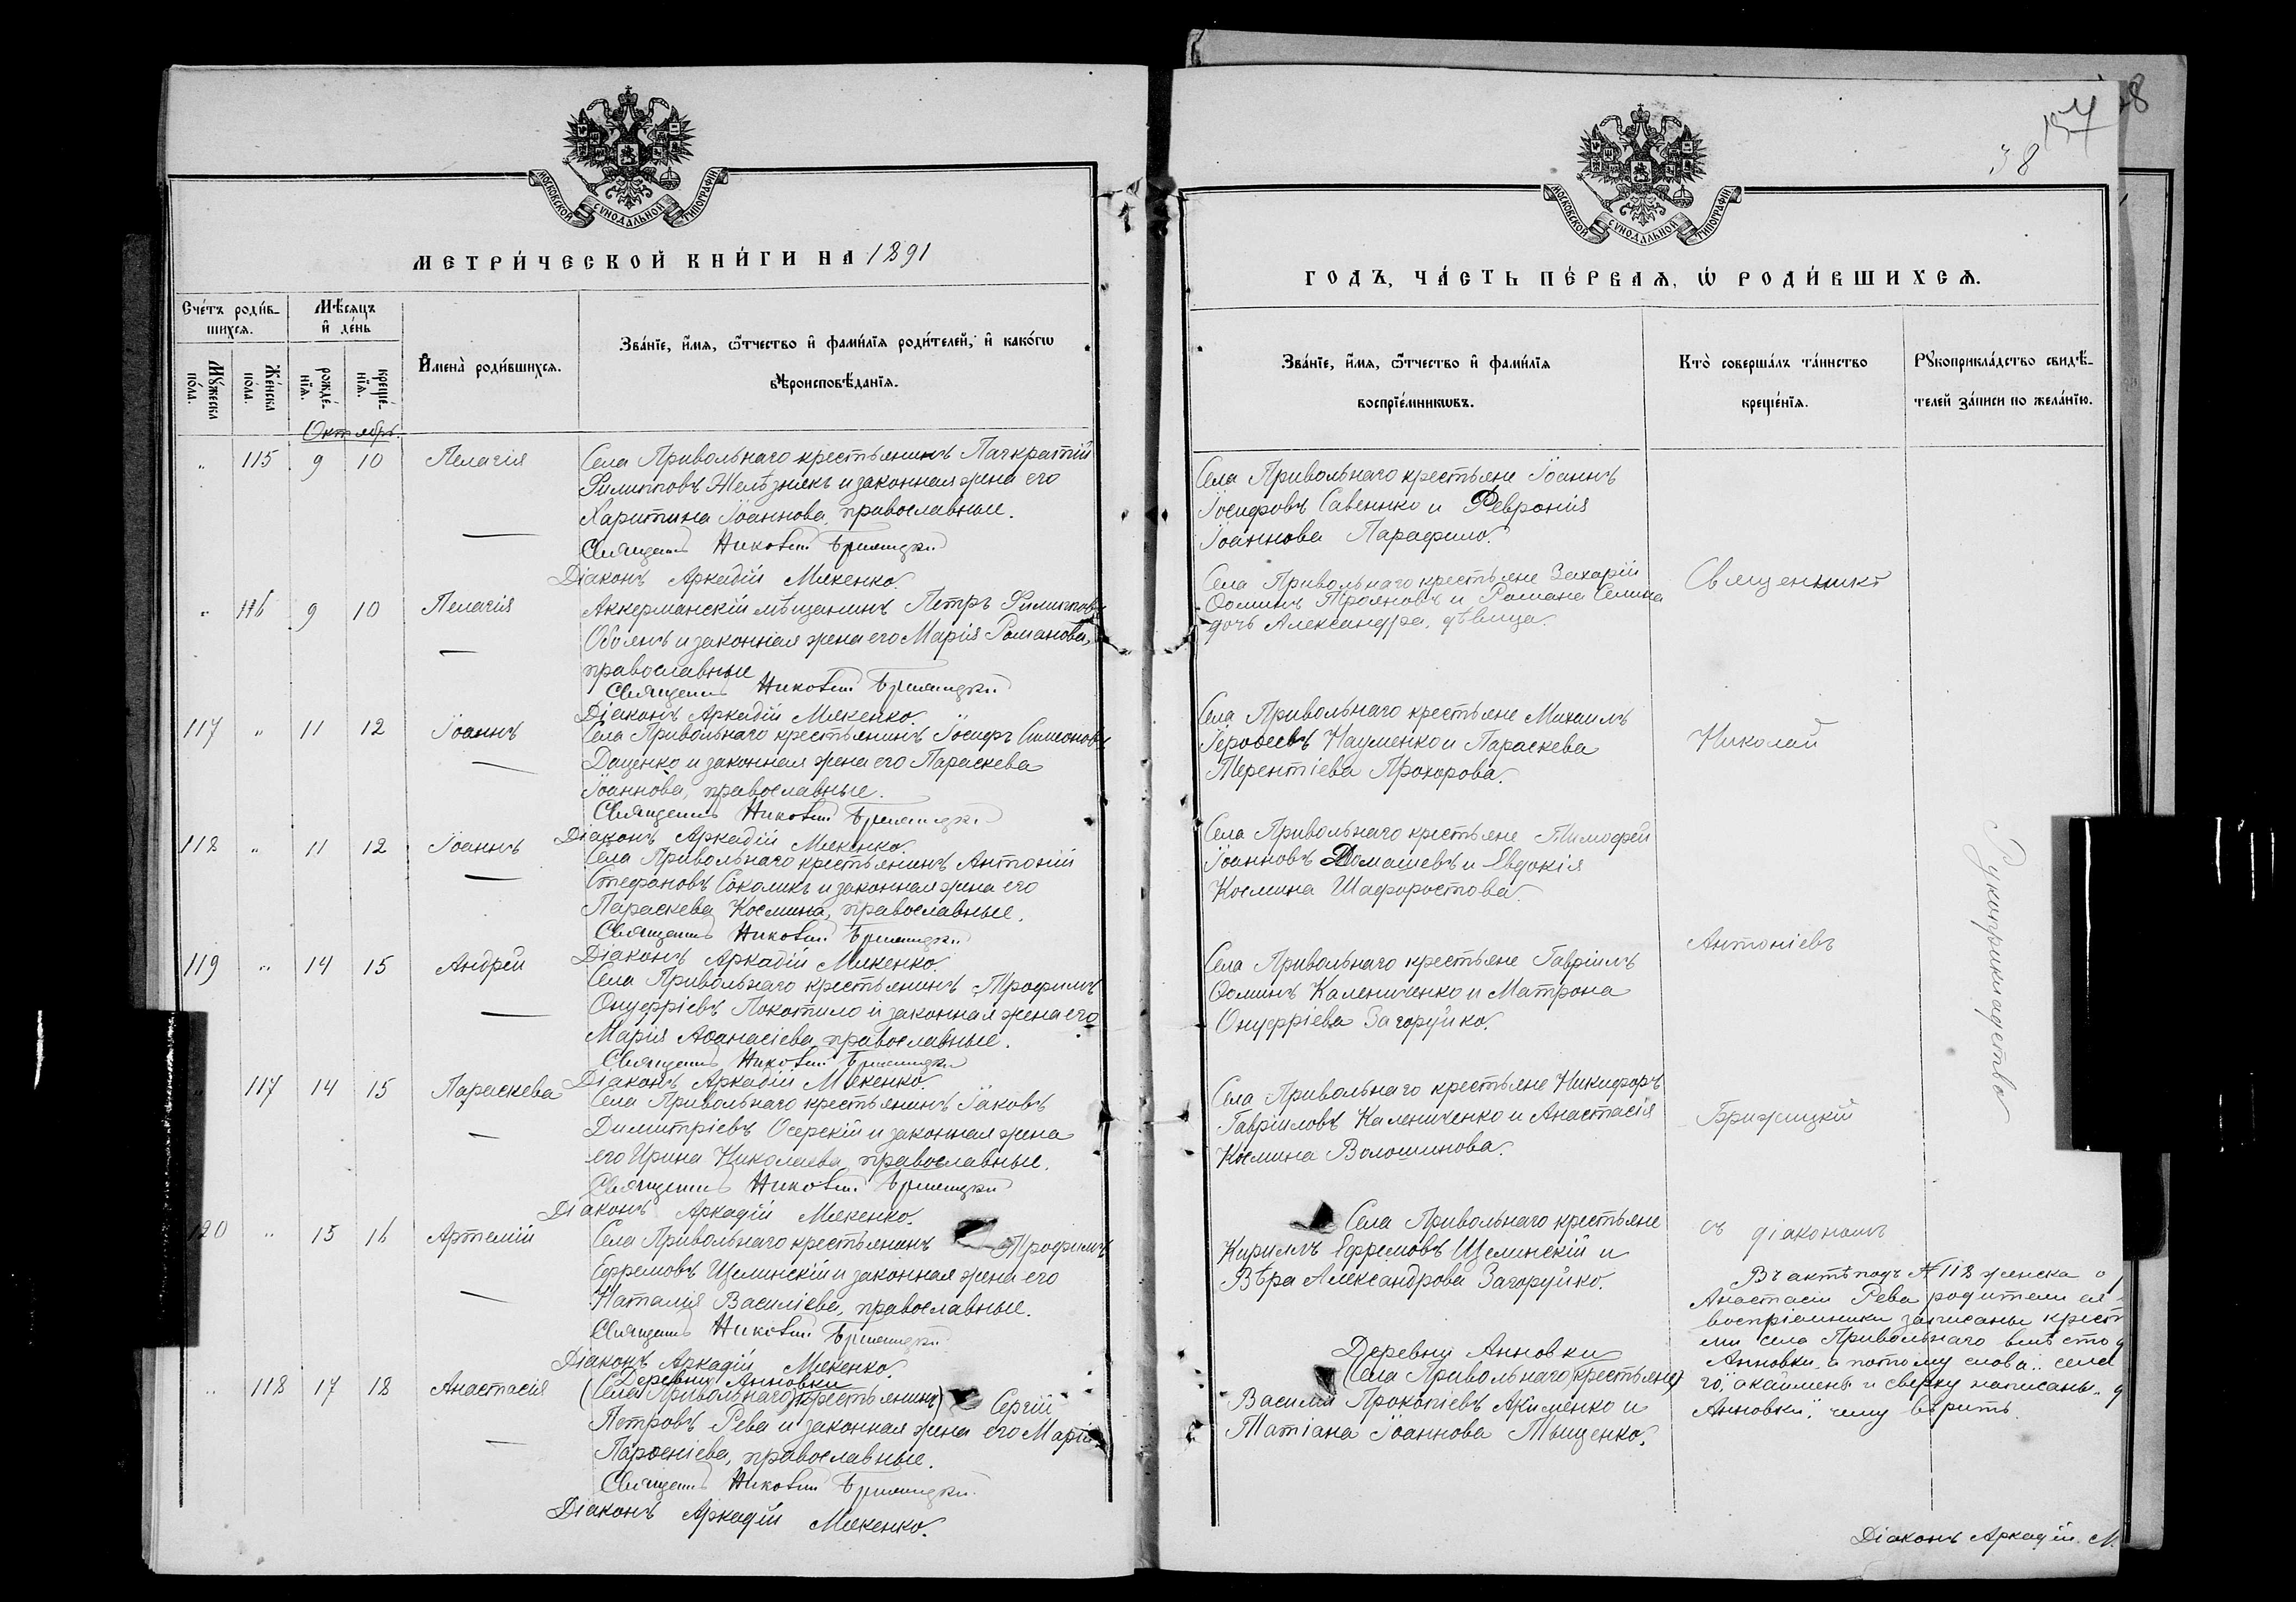 МОСКОВСКОЙ СУНОДАЛЬНОЙ ТИПОГРАФІИ
МЕТРИ́ЧЕСКОЙ КНИ́ГИ НА 1891
Сче́тъ роди́в-
шихсѧ.
Мѣ́сѧцъ
и҆ де́нь
Мꙋ́жеска
по́ла.
Же́нска
по́ла.
рожде́-
нїѧ.
креще́-
нїѧ.
И҆мена̀ роди́вшихсѧ.
Зва́нїе, и҆́мѧ, ѻ҆́тчество и҆ фами́лїѧ роди́телей, и҆ како́гѡ
вѣроисповѣ́данїѧ.
Октябрь.
" 115 9 10 Пелагія
Села Привольнаго крестьянинъ Панкратій
Филипповъ Желѣзнякъ и законная жена его
Харитина Іоаннова, православные.
Священникъ Николай Брижицкій
Діаконъ Аркадій Мякенко.
" 116 9 10 Пелагія
Аккерманскій мѣщанинъ Петръ Филипповъ
и законная жена его Марія Романова,
православные
Священникъ Николай Брижицкій
Діаконъ Аркадій Мякенко.
117 " 11 12 Іоаннъ
Села Привольнаго крестьянинъ Іосифъ Симеоновъ
Даценко и законная жена его Параскева
Іоаннова, православные.
Священникъ Николай Брижицкій
Діаконъ Аркадій Мякенко.
118 " 11 12 Іоаннъ
Села Привольнаго крестьянинъ Антоній
Стефановъ Соколикъ и законная жена его
Параскева Космина, православные.
Священникъ Николай Брижицкій
Діаконъ Аркадій Мякенко.
119 " 14 15 Андрей
Села Привольнаго крестьянинъ Трофимъ
Онуфріевъ Покотило и законная жена его
Марія Аѳанасіева, православные.
Священникъ Николай Брижицкій
Діаконъ Аркадій Мякенко.
" 117 14 15 Параскева
Села Привольнаго крестьянинъ Іаковъ
Димитріевъ Осерскій и законная жена
его Ирина Николаева, православные.
Священникъ Николай Брижицкій
Діаконъ Аркадій Мякенко.
120 " 15 16 Артемій
Села Привольнаго крестьянинъ Трофимъ
Ефремовъ Щелинскій и законная жена его
Наталія Василіева, православные.
Священникъ Николай Брижицкій
Діаконъ Аркадій Мякенко.
Деревни Анновки
" 118 17 18 Анастасія
(Села Привольнаго) (крестьянинъ) Сергій
Петровъ Рева и законная жена его Марія
Парѳеніева, православные.
Священникъ Николай Брижицкій
Діаконъ Аркадій Мякенко.
38
157
МОСКОВСКОЙ СУНОДАЛЬНОЙ ТИПОГРАФІИ
ГОДЪ, ЧА́СТЬ ПЕ́РВАѦ, Ѡ҆ РОДИ́ВШИХСѦ.
Зва́нїе, и҆́мѧ, ѻ҆́тчество и҆ фами́лїѧ
воспрїе́мникѡвъ.
Кто̀ соверша́лъ та́инство
креще́нїѧ.
Рꙋкоприкла́дство свидѣ́-
телей за́писи по жела́нїю.
Села Привольнаго крестьяне Іоаннъ
Іосифовъ Савенко и Февронія
Іоаннова Парафило.
Села Привольнаго крестьяне Захарій
Ѳоминъ Трояновъ и Романа Селина
дочь Александра, дѣвица.
Священникъ
Села Привольнаго крестьяне Михаилъ
Іероѳеевъ Науменко и Параскева
Терентіева Прохорова.
Николай
Села Привольнаго крестьяне Тимофей
Іоанновъ Домашевъ и Евдокія
Космина Шафоростова.
Антоніевъ
Села Привольнаго крестьяне Гавріилъ
Ѳоминъ Калениченко и Матрона
Онуфріева Загоруйко.
Села Привольнаго крестьяне Никифоръ
Гавріиловъ Калениченко и Анастасія
Космина Волошинова.
Брижицкій
Рукоприкладство
Села Привольнаго крестьяне
Кириллъ Ефремовъ Щелинскій и
Вѣра Александрова Загоруйко.
съ діакономъ
Деревни Анновки
(Села Привольнаго) (крестьяне)
Василій Прокопіевъ Акименко и
Татіана Іоаннова Тыщенко.
Въ актѣ подъ № 118 женска
Анастасіи Рева родители ея
воспріемники записаны крест
ми села Привольнаго вмѣсто
Анновки, а потому слова: села
го, окаймлены и сверху написаны
Анновки, чему вѣрить.
Діаконъ Аркадій М.